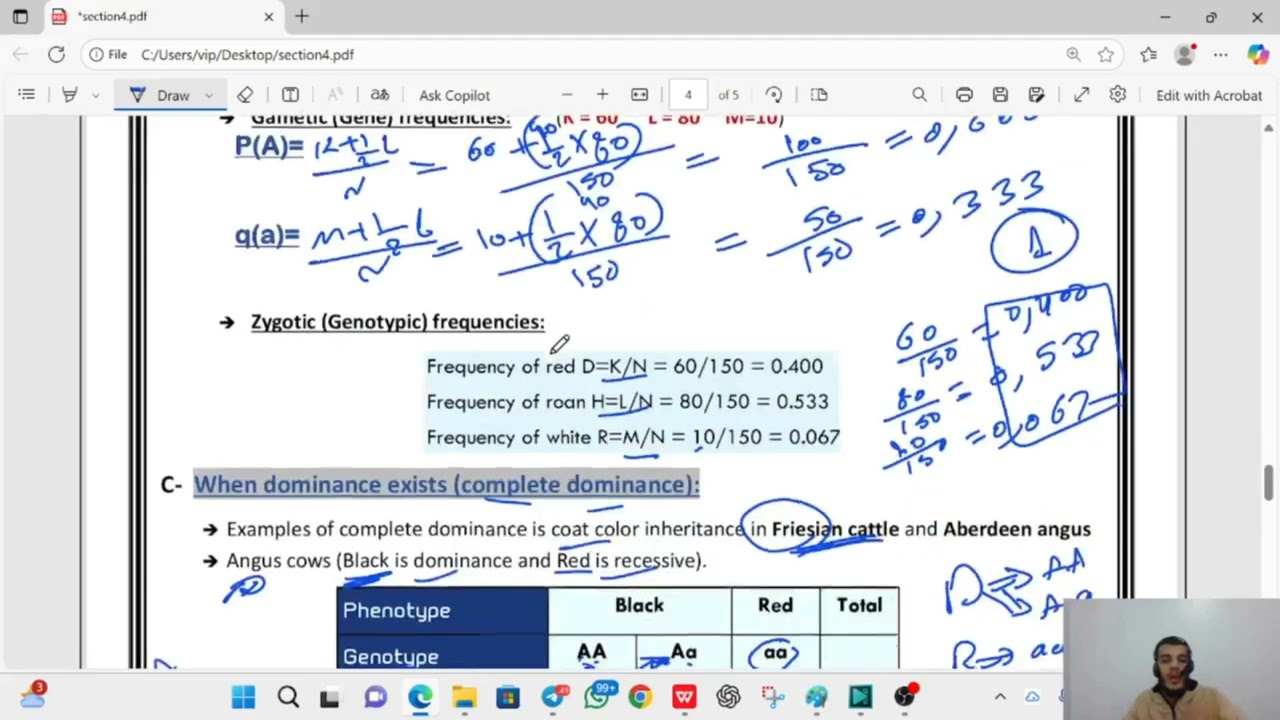 *section4.pdf
File C:/Users/vip/Desktop/section4.pdf
Draw Ask Copilot 4 of 5 Edit with Acrobat
→ Gametic (Gene) frequencies: (K = 60 L = 80 M=10)
P(A)= = 60 + (1/2 × 80) / 150 = 100/150 = 0,6
q(a)= = 10 + (1/2 × 80) / 150 = 50/150 = 0,333
1
→ Zygotic (Genotypic) frequencies:
60/150 = 0,400
Frequency of red D=K/N = 60/150 = 0.400
80/150 = 0,533
Frequency of roan H=L/N = 80/150 = 0.533
Frequency of white R=M/N = 10/150 = 0.067
= 0,067
C- When dominance exists (complete dominance):
→ Examples of complete dominance is coat color inheritance in Friesian cattle and Aberdeen angus
→ Angus cows (Black is dominance and Red is recessive).
AA
Phenotype Black Red Total
Genotype AA Aa aa
3
49
99+